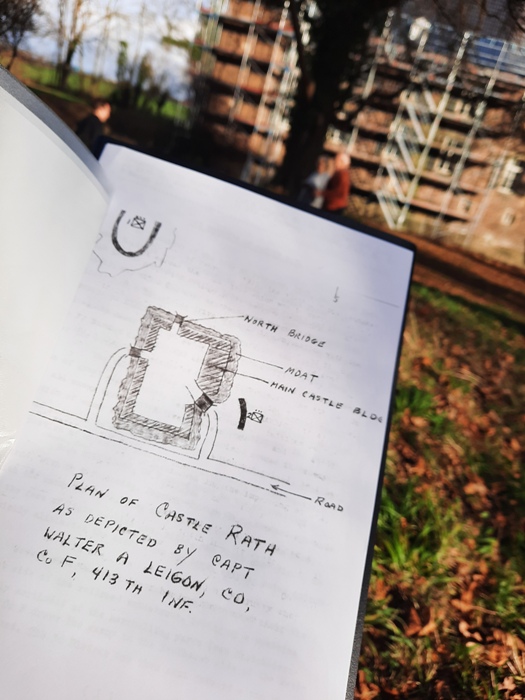 NORTH BRIDGE
MOAT
MAIN CASTLE BLDG
ROAD
PLAN OF CASTLE RATH
AS DEPICTED BY CAPT
WALTER A LEIGON, CO,
CO F, 413TH INF.